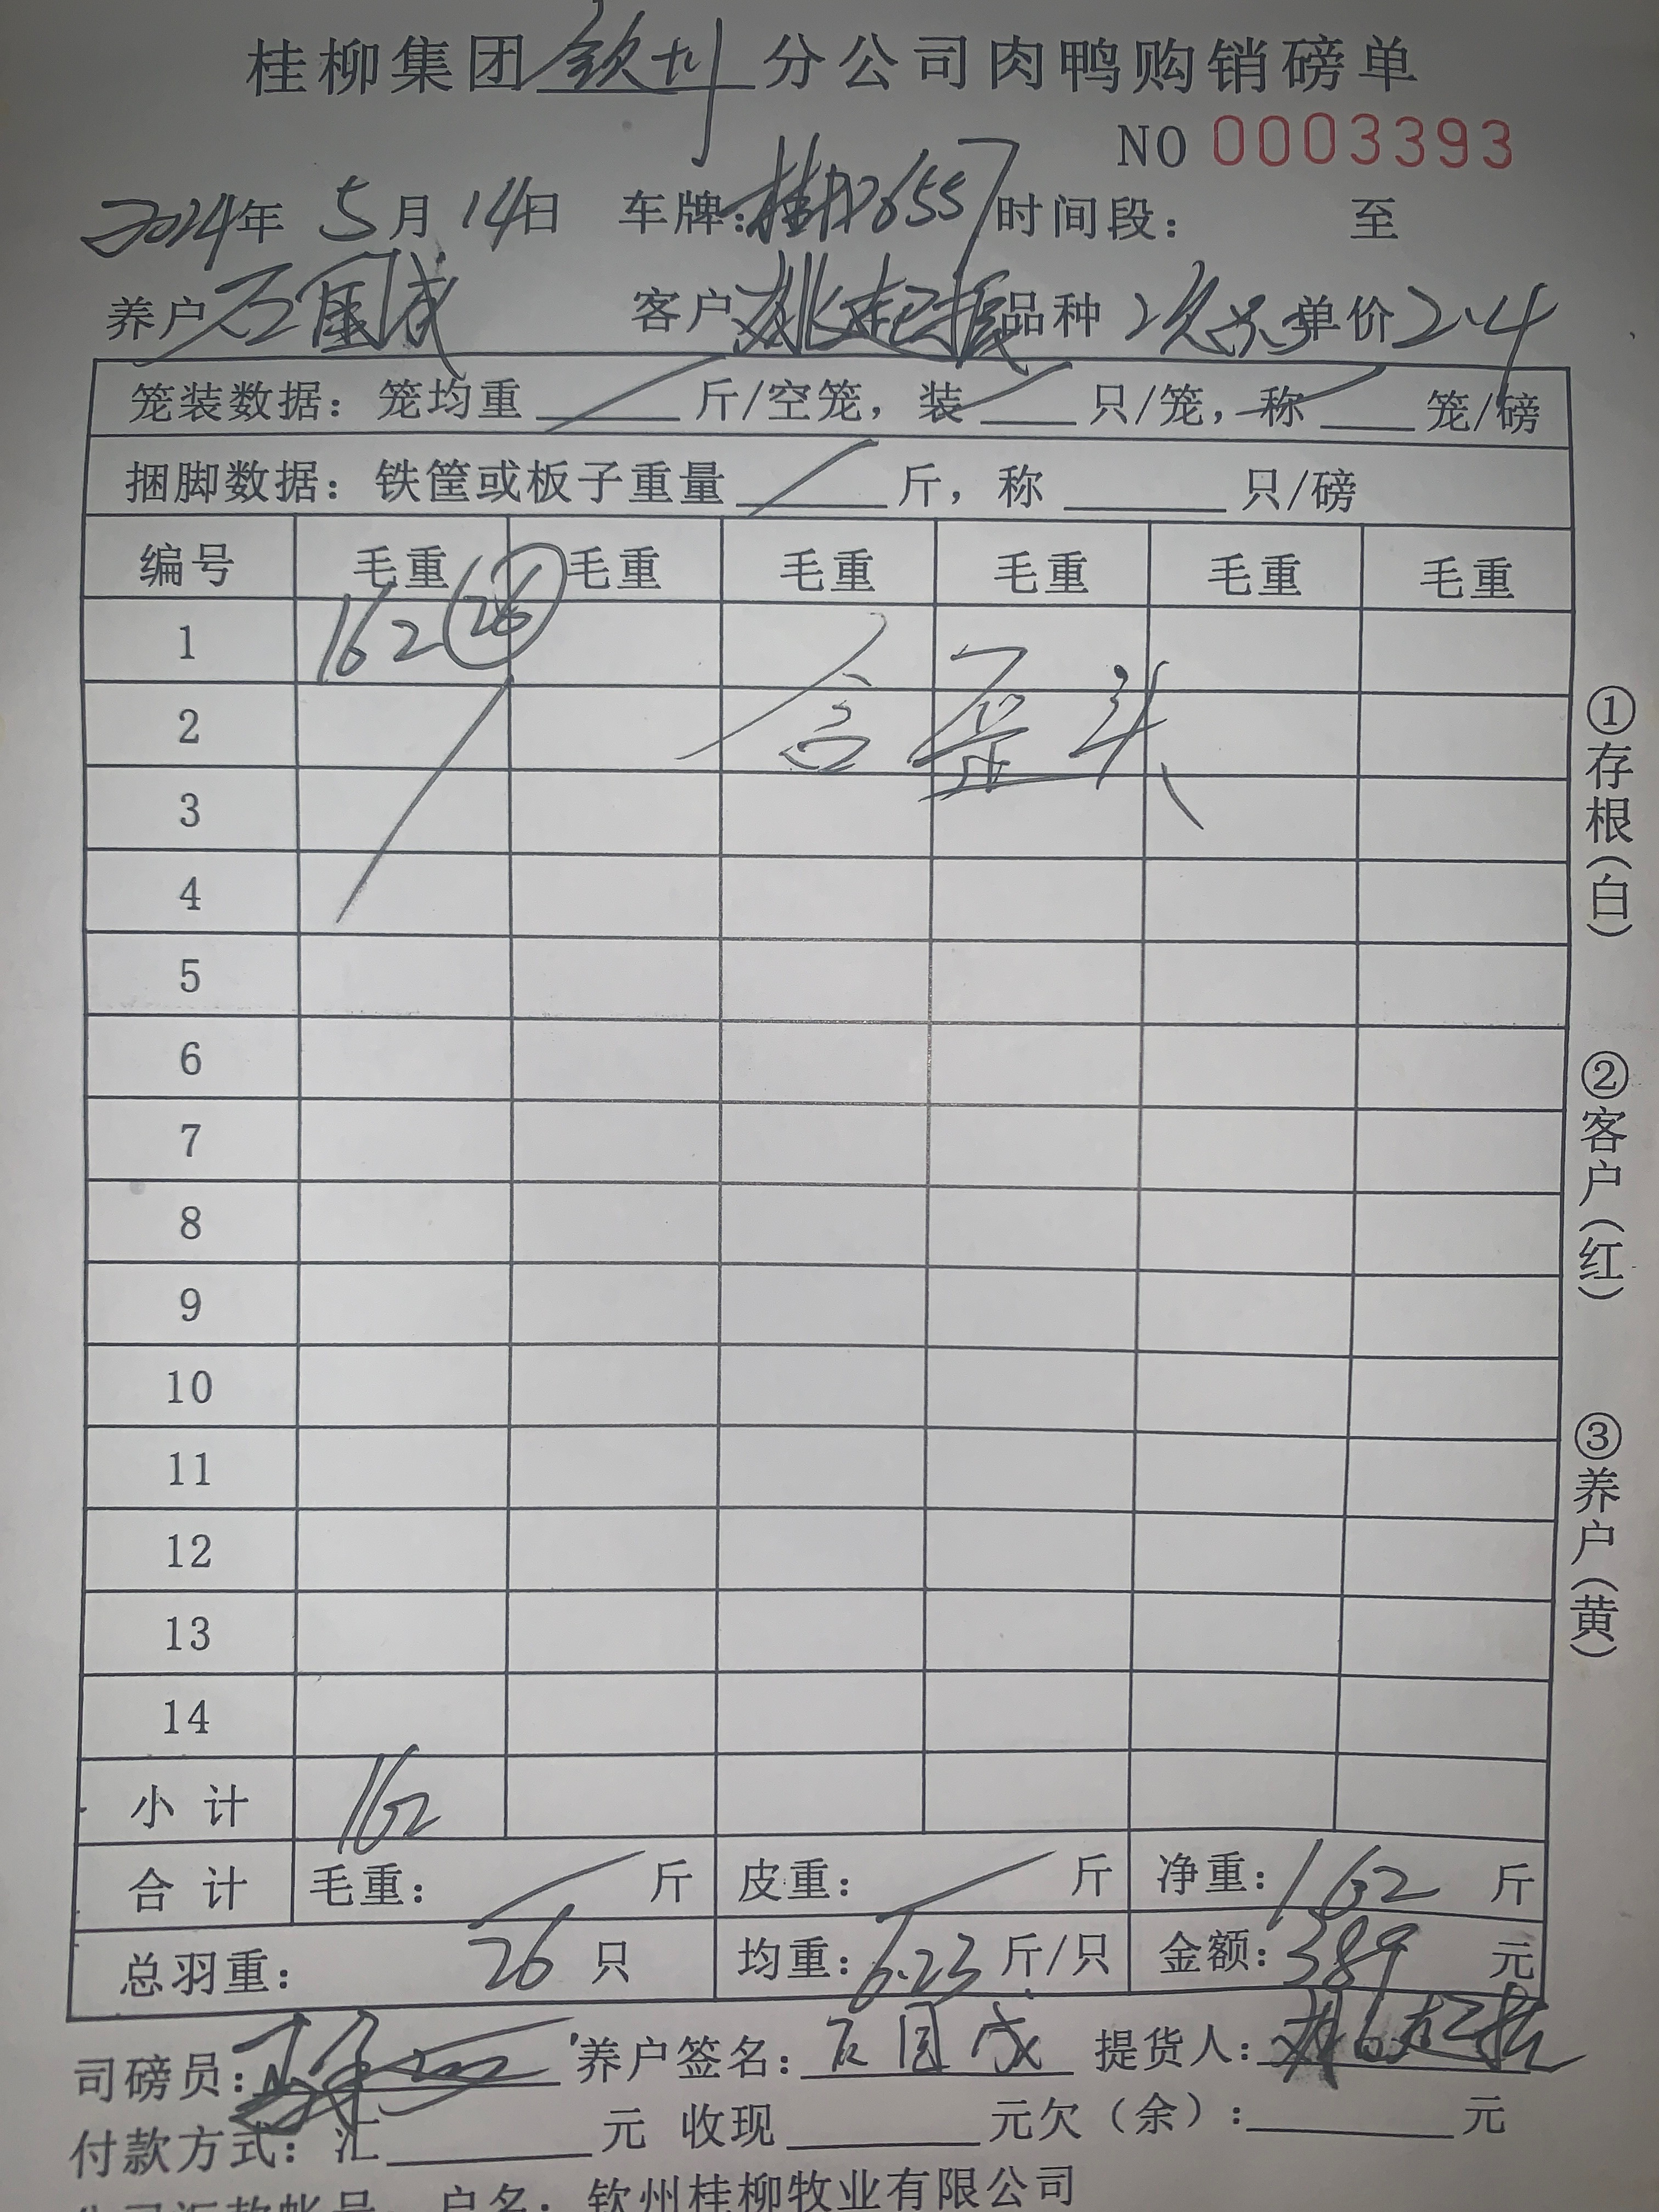 桂柳集团钦州分公司肉鸭购销磅单
NO 0003393
2024年 5月 14日 车牌: 时间段: 至
养户 石国成 客户 品种 单价 2.4
笼装数据: 笼均重 斤/空笼, 装 只/笼, 称 笼/磅
捆脚数据: 铁筐或板子重量 斤, 称 只/磅
编号 毛重 毛重 毛重 毛重 毛重 毛重
1 162 26
2 含歪头
3
4
5
6
7
8
9
10
11
12
13
14
小计 162
合计 毛重: 斤 皮重: 斤 净重: 162 斤
总羽重: 26 只 均重: 6.23 斤/只 金额: 389 元
司磅员: 养户签名: 石国成 提货人:
付款方式: 汇 元 收现 元欠(余): 元
户名: 钦州桂柳牧业有限公司
①存根(白)
②客户(红)
③养户(黄)